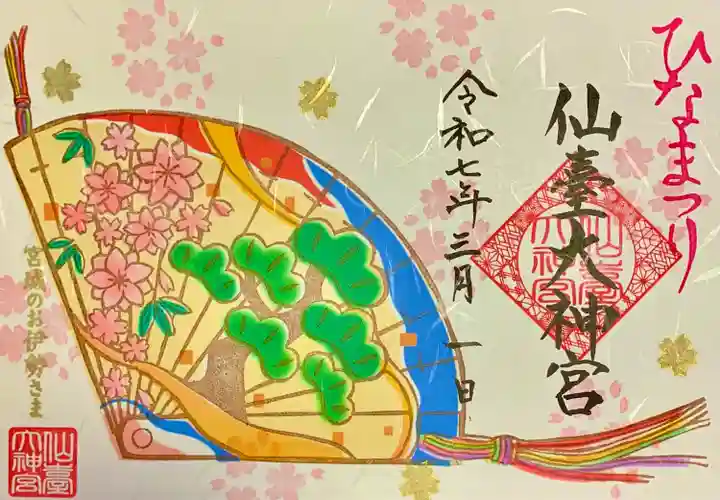 ひなまつり
仙臺大神宮
仙臺大神宮
令和七年三月一日
宮城のお伊勢さま
仙臺大神宮